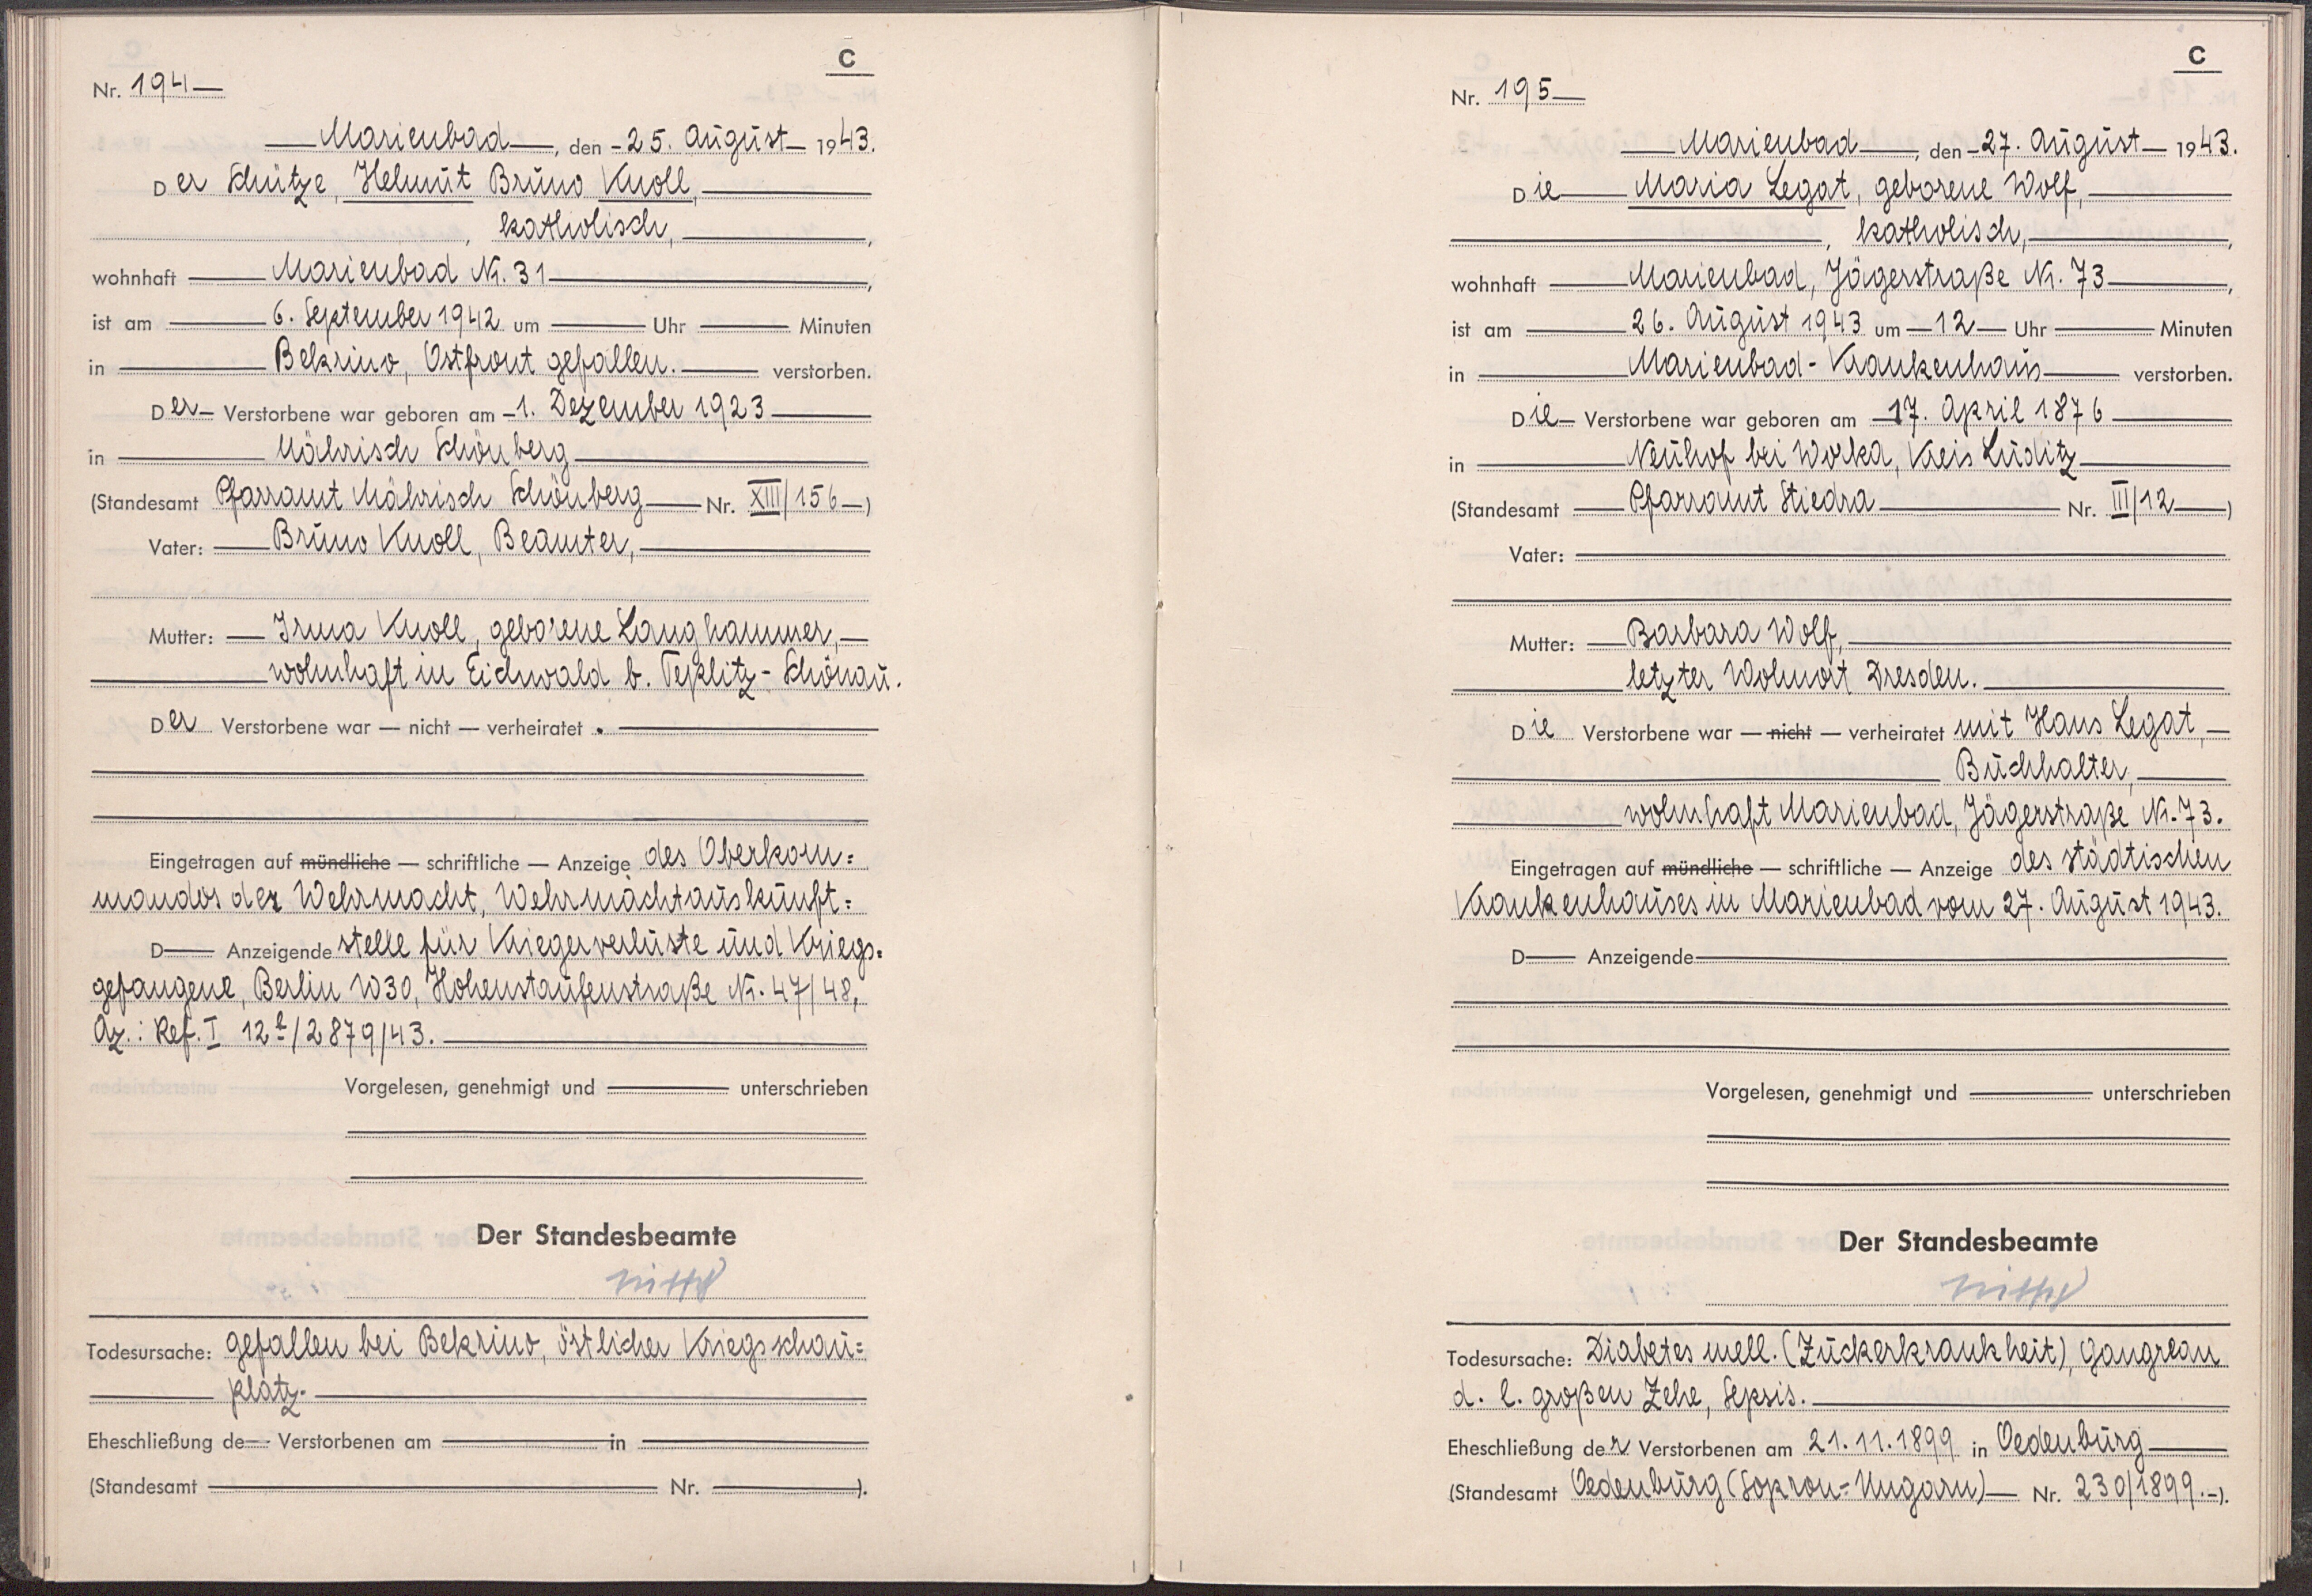 C
Nr. 194
Marienbad, den 25. August 1943.
Der Schütze, Helmut Bruno Knoll,
, katholisch,
wohnhaft Marienbad Nr. 31,
ist am 6. September 1942 um Uhr Minuten
in Bekrino, Ostfront gefallen. verstorben.
Der Verstorbene war geboren am 1. Dezember 1923
in Mährisch Schönberg
(Standesamt Pfarramt Mährisch Schönberg Nr. XIII/156)
Vater: Bruno Knoll, Beamter,
Mutter: Irma Knoll, geborene Langhammer,
wohnhaft in Eichwald b. Teplitz-Schönau.
Der Verstorbene war — nicht — verheiratet.
Eingetragen auf mündliche — schriftliche — Anzeige des Oberkom=
mandos der Wehrmacht, Wehrmachtauskunft=
D Anzeigende stelle für Kriegerverluste und Kriegs=
gefangene, Berlin W30, Hohenstaufenstraße Nr. 47/48,
Az.: Ref. I 12 /2879/43.
Vorgelesen, genehmigt und unterschrieben
Der Standesbeamte
Todesursache: gefallen bei Bekrino, östlicher Kriegsschau=
platz.
Eheschließung de Verstorbenen am in
(Standesamt Nr. ).
C
Nr. 195
Marienbad, den 27. August 1943.
Die Maria Legat, geborene Wolf,
, katholisch,
wohnhaft Marienbad, Jägerstraße Nr. 73,
ist am 26. August 1943 um 12 Uhr Minuten
in Marienbad-Krankenhaus verstorben.
Die Verstorbene war geboren am 17. April 1876
in Neuhof bei Worka, Kreis Luditz
(Standesamt Pfarramt Stiedra Nr. III/12)
Vater:
Mutter: Barbara Wolf,
letzter Wohnort Dresden.
Die Verstorbene war — nicht — verheiratet mit Hans Legat,
Buchhalter,
wohnhaft Marienbad, Jägerstraße Nr. 73.
Eingetragen auf mündliche — schriftliche — Anzeige des städtischen
Krankenhauses in Marienbad vom 27. August 1943.
D Anzeigende
Vorgelesen, genehmigt und unterschrieben
Der Standesbeamte
Todesursache: Diabetes mell. (Zuckerkrankheit), Gangrean
d. l. großen Zehe, Sepsis.
Eheschließung der Verstorbenen am 21.11.1899 in Oedenburg
(Standesamt Oedenburg (Sopron=Ungarn) Nr. 230/1899.-).